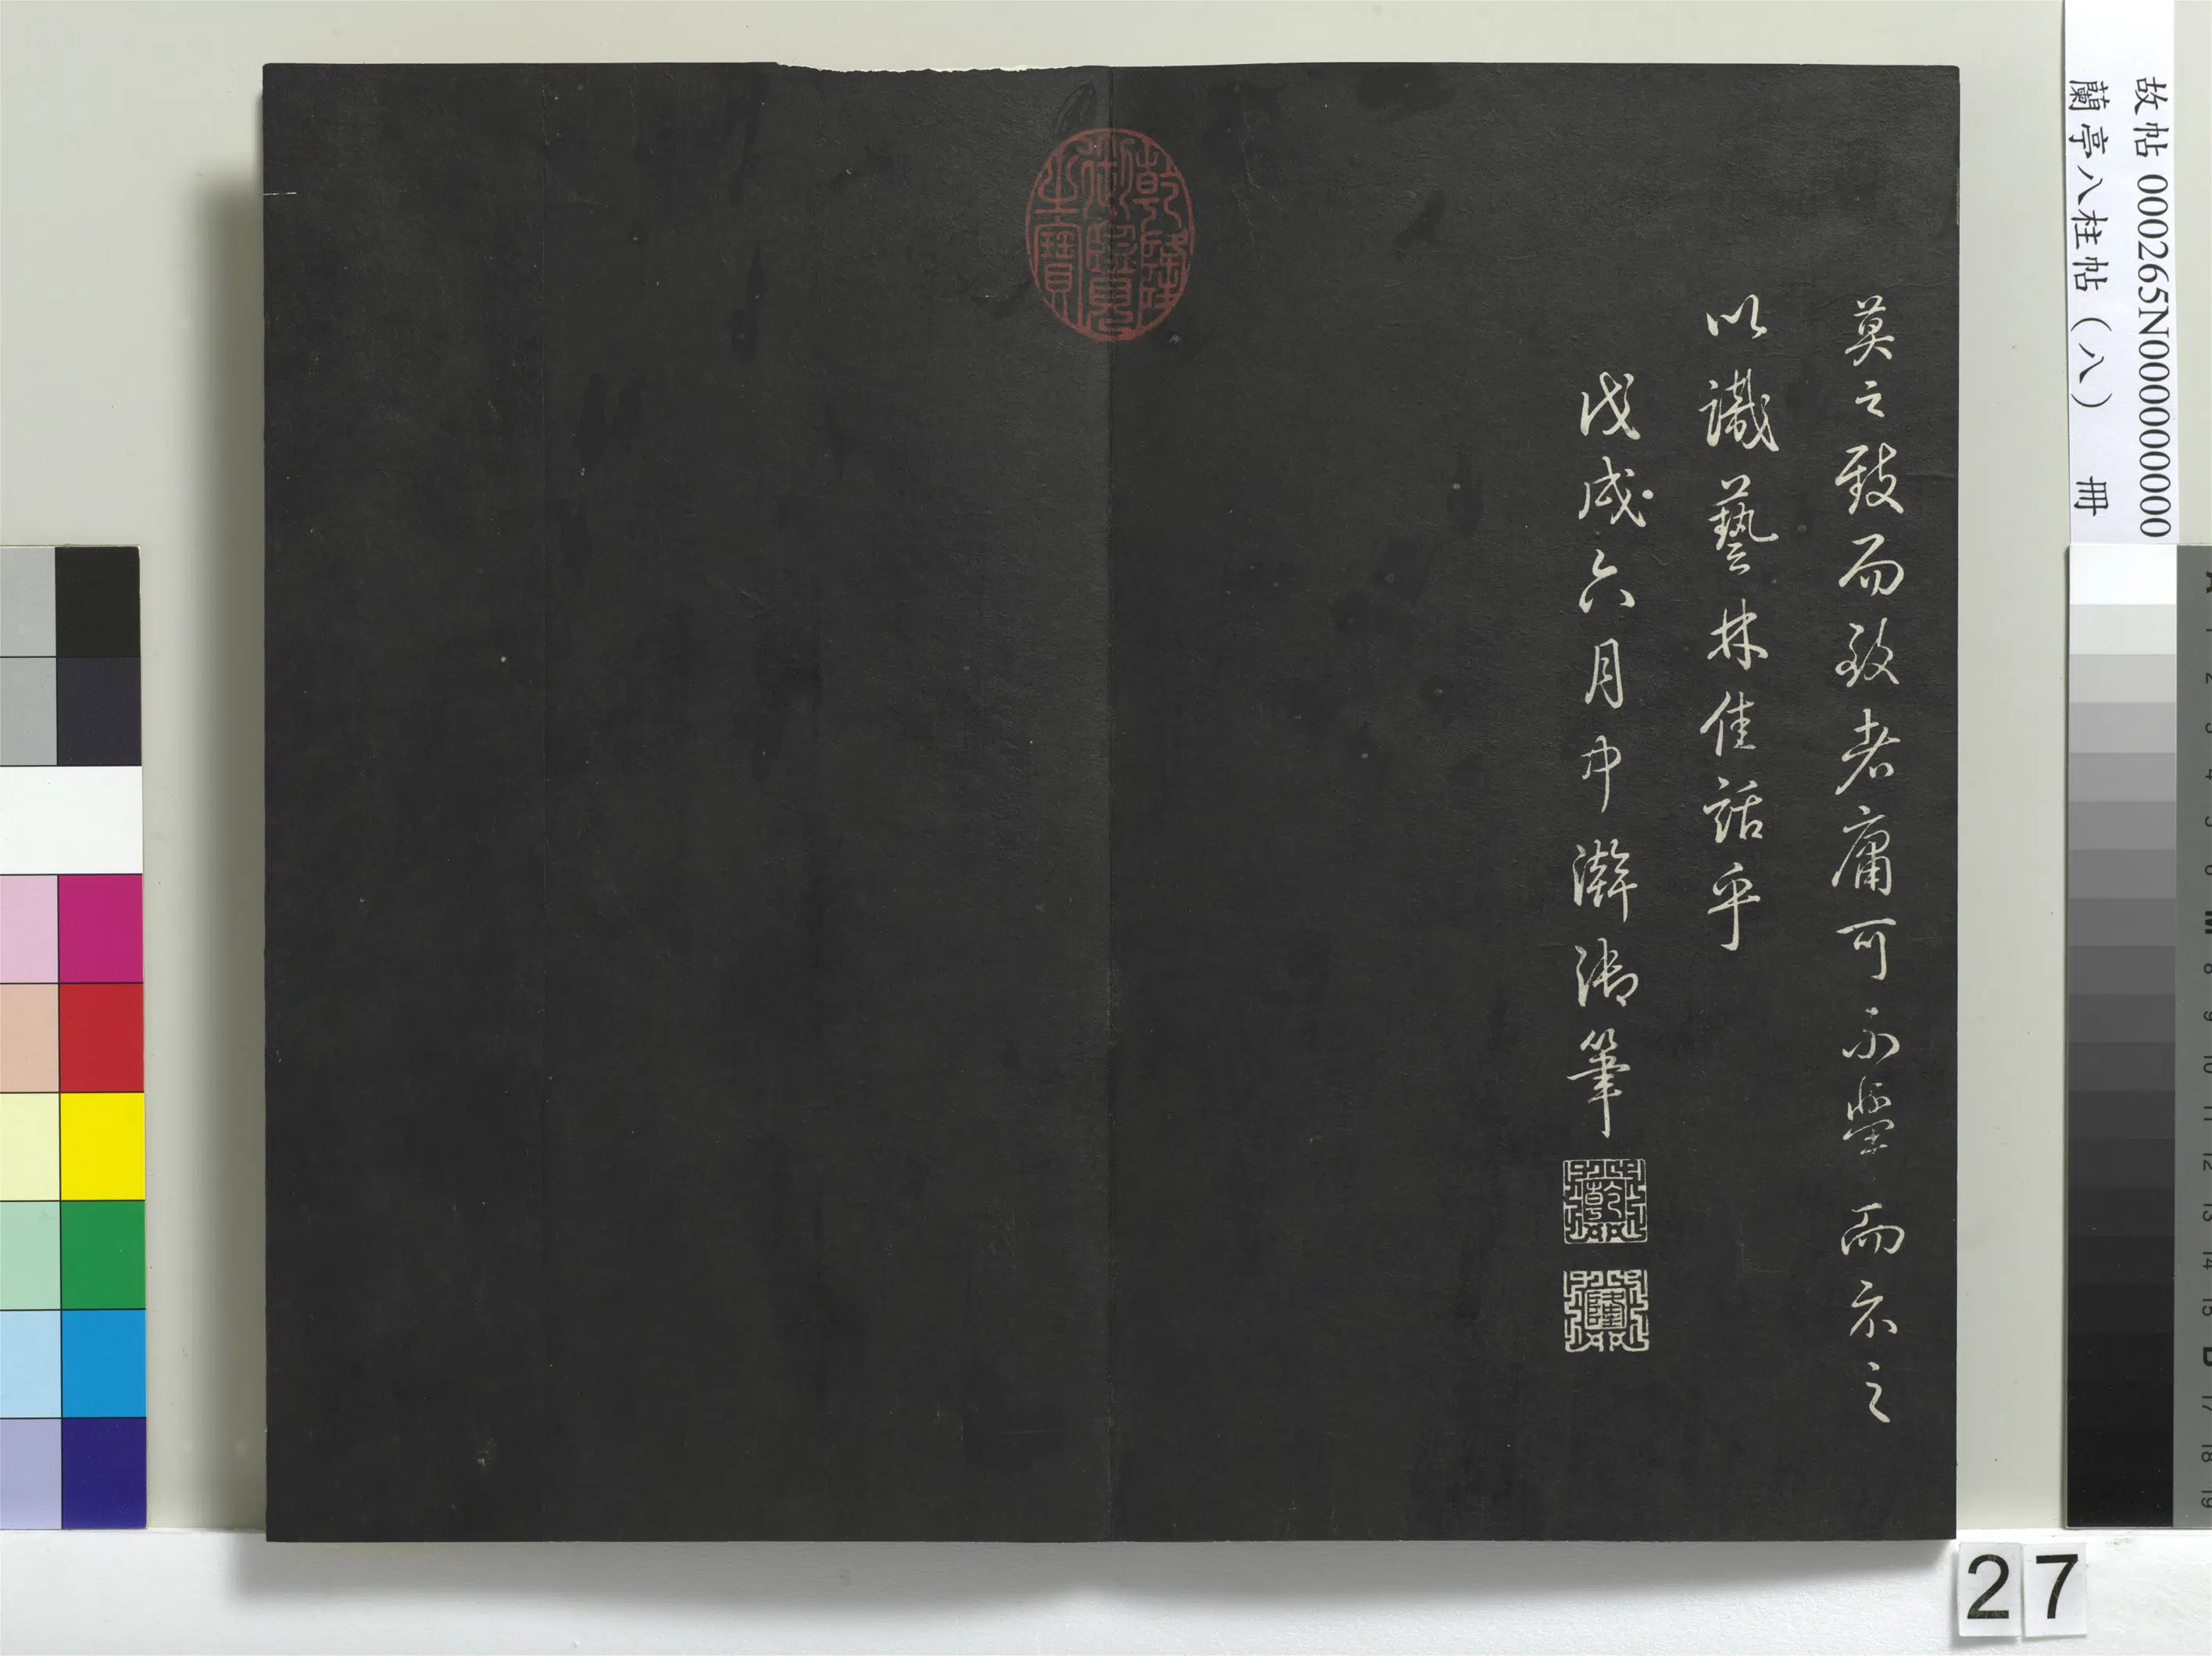 故帖 000265N000000000
蘭亭八柱帖（八） 冊
莫之致而致者庸可不舉而示之
以識藝林佳話乎
戊戌六月中澣御筆
乾
隆
乾隆
御覽
之寶
27